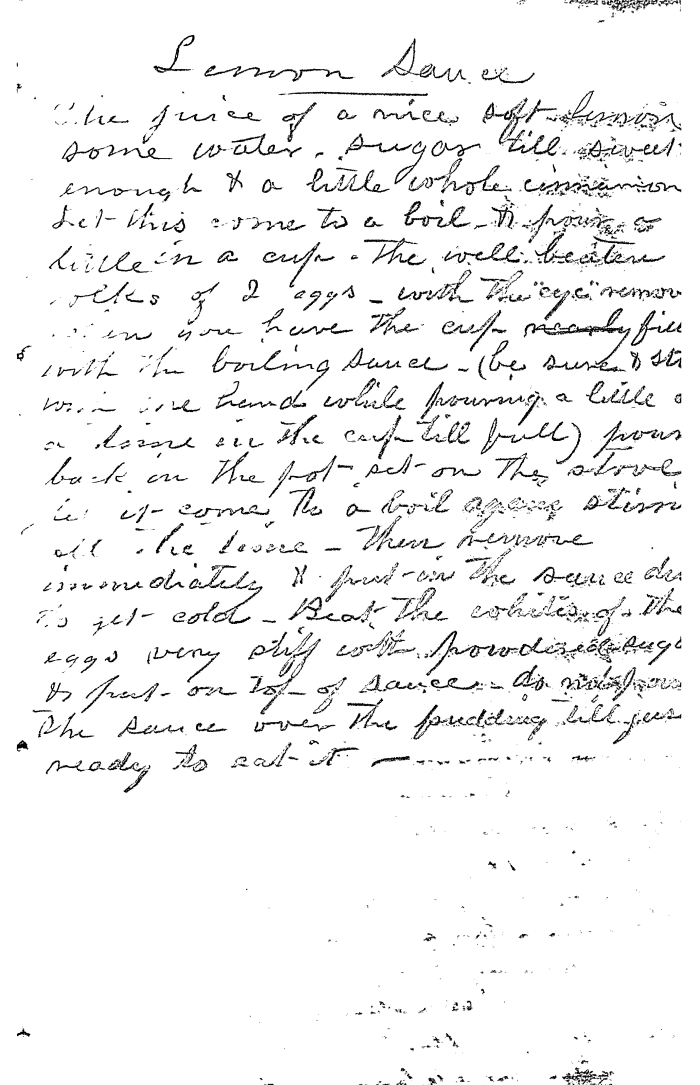 Lemon Sauce
The juice of a nice soft lemon
some water. sugar till sweet
enough & a little whole cinnamon
Let this come to a boil & pour a
little in a cup - The well beaten
yolks of 2 eggs - with the "eye" remov
you have the cup nearly full
with the boiling sauce - (be sure & sti
with one hand while pouring a little a
a time in the cup till full) pour
back in the pot set on the stove
let it come to a boil again stirri
all the time - then remove
immediately & put in the sauce di
to get cold - Beat the whites of the
eggs very stiff with powdered suga
& put on top of sauce - do not pour
The sauce over the pudding till jus
ready to eat it —